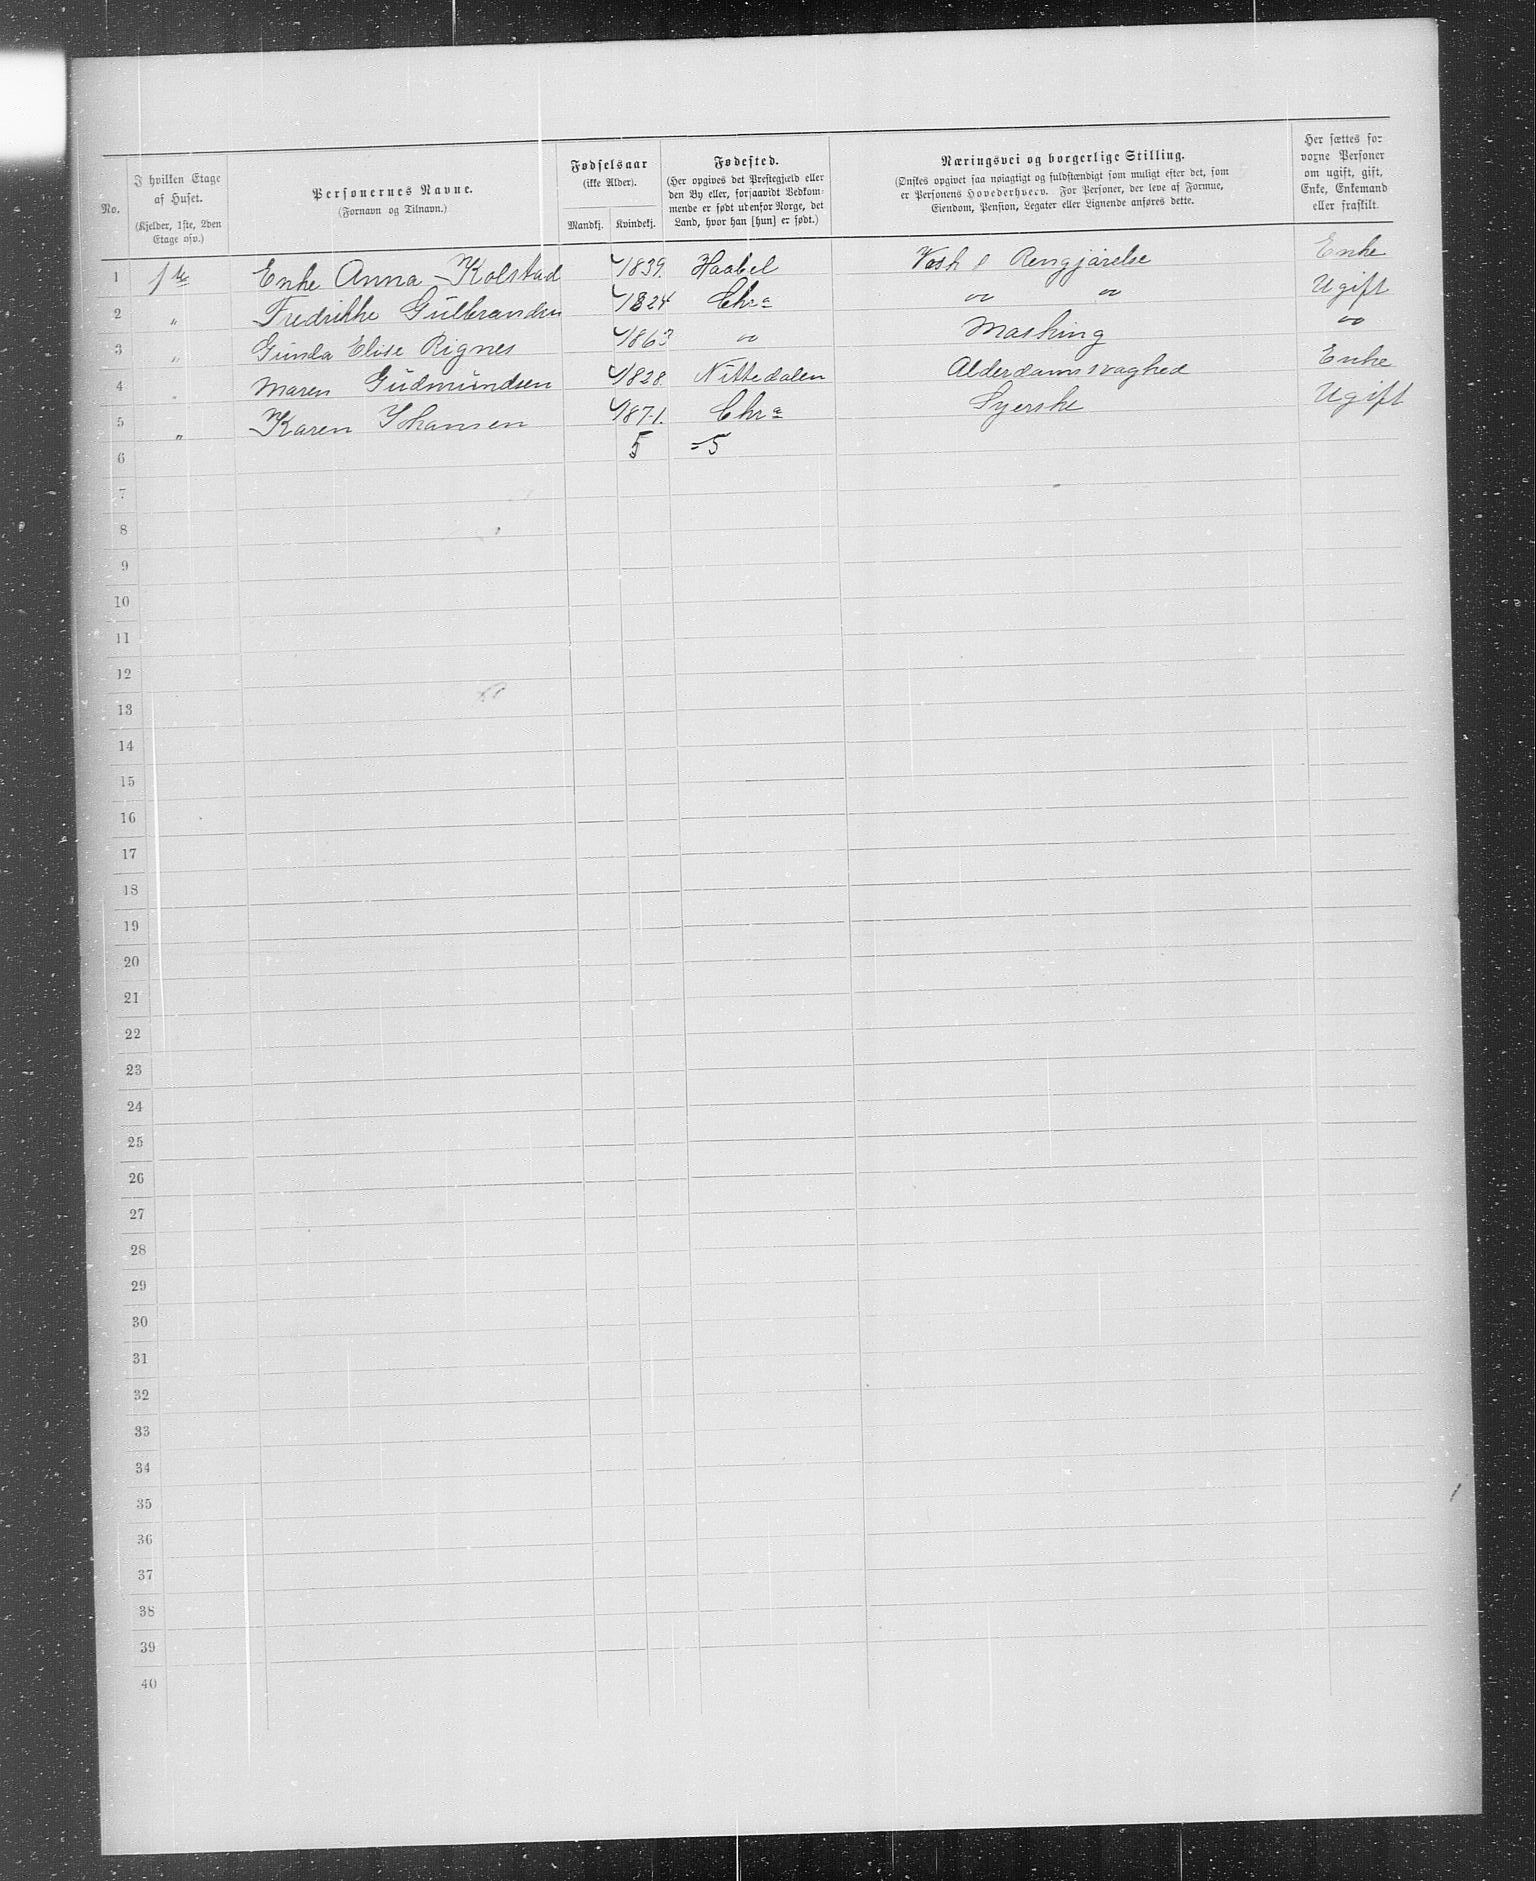 No.
I hvilken Etage af Huset.
(Kjelder, 1ste, 2den Etage osv.)
Personernes Navne.
(Fornavn og Tilnavn.)
Fødselsaar
(ikke Alder).
Mandkj. Kvindekj.
Fødested.
(Her opgives det Prestegjeld eller
den By eller, forsaavidt Vedkom-
mende er født udenfor Norge, det
Land, hvor han [hun] er født.)
Næringsvei og borgerlige Stilling.
(Ønskes opgivet saa nøiagtigt og fuldstændigt som muligt efter det, som
er Personens Hovederhverv. For Personer, der leve af Formue,
Eiendom, Pension, Legater eller Lignende anføres dette.
Her sættes for
voxne Personer
om ugift, gift,
Enke, Enkemand
eller fraskilt.
1 1ste Enke Anna Kolstad 1839. Haabel Vask & Rengjørelse Enke
2 " Fredrikke Gulbrandsen 1824 Chr.a " " Ugift
3 " Gunda Elise Rignes 1863 " Masking "
4 " Maren Gudmundsen 1828 Nittedalen Alderdomssvaghed Enke
5 " Karen Johansen 1871. Chr.a Syerske Ugift
6 5 =5
7
8
9
10
11
12
13
14
15
16
17
18
19
20
21
22
23
24
25
26
27
28
29
30
31
32
33
34
35
36
37
38
39
40